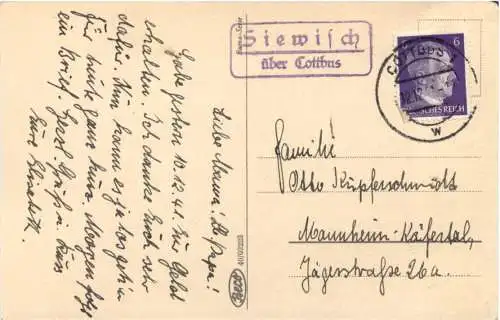 Liebe Mama! Lb. Papa!
Habe gestern 10.12.41 Euer Geld
erhalten. Ich danke Euch sehr
dafür. Nun kann es ja los geh'n
für heute ganz kurz. Morgen folgt
ein Brief. Herzl. Gruß u. Kuss
Eure Elisabeth.
Beco
Siewisch
über Cottbus
COTTBUS
W
6
DEUTSCHES REICH
Familie
Otto Kupferschmidt
Mannheim-Käfertal,
Jägerstraße 26a.